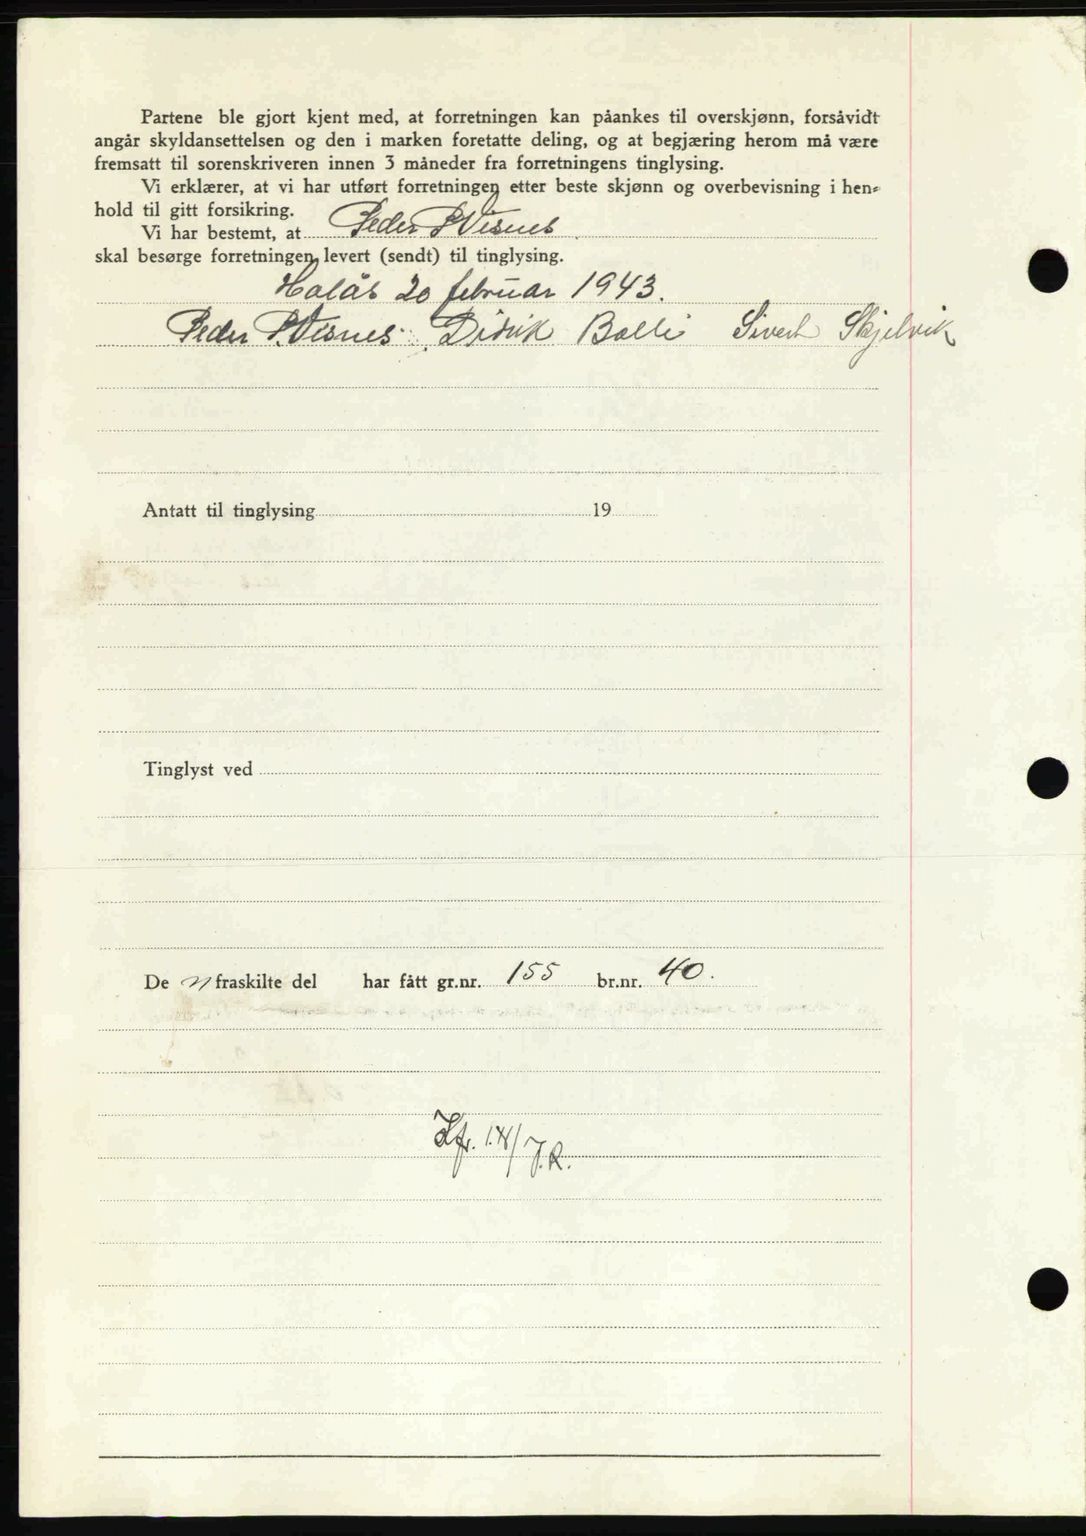 Partene ble gjort kjent med, at forretningen kan påankes til overskjønn, forsåvidt
angår skyldansettelsen og den i marken foretatte deling, og at begjæring herom må være
fremsatt til sorenskriveren innen 3 måneder fra forretningens tinglysing.
Vi erklærer, at vi har utført forretningen etter beste skjønn og overbevisning i hen-
hold til gitt forsikring.
Vi har bestemt, at Peder P. Visnes
skal besørge forretningen levert (sendt) til tinglysing.
Halås 20 februar 1943.
Peder P. Visnes. Didrik Balli Sivert Skjelvik
Antatt til tinglysing 19
Tinglyst ved
De n fraskilte del har fått gr.nr. 155 br.nr. 40.
Kfr. / J.R.